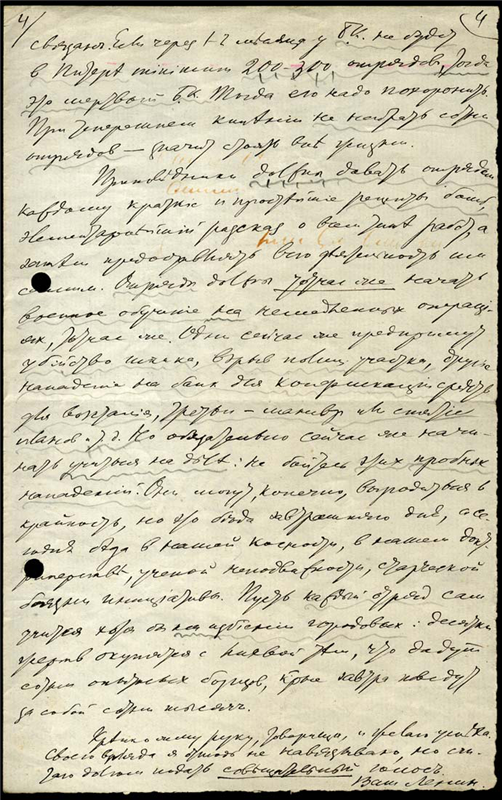 4/ 4
связано. Если через 1-2 месяца у Б.К. не будет
в Питере minimum 200-300 отрядов, тогда
это мертвый Б.К. Тогда его надо похоронить.
При теперешнем кипении не набрать сотни
отрядов — значит стоять вне жизни.
Проповедники должны давать отрядам
каждому краткие и простейшие рецепты бомб,
элементарнейший рассказ о всем типе работ, а
затем предоставлять всю деятельность им
самим. Отряды должны тотчас же начать
военное обучение на немедленных операци-
ях, тотчас же. Одни сейчас же предпримут
убийство шпика, взрыв полиц. участка, другие
нападение на банк для конфискации средств
для восстания, третьи — маневр или снятие
планов и т. д. Но обязательно сейчас же начи-
нать учиться на деле: не бойтесь этих пробных
нападений. Они могут, конечно, выродиться в
крайность, но это беда завтрашнего дня, а се-
годня беда в нашей косности, в нашем док-
тринерстве, ученой неподвижности, старческой
боязни инициативы. Пусть каждый отряд сам
учится хотя бы на избиении городовых: десятки
жертв окупятся с лихвой тем, что дадут
сотни опытных борцов, крые завтра поведут
за собой сотни тысяч.
Крепко жму руку, товарищи, и желаю успеха.
Своего взгляда я отнюдь не навязываю, но счи-
таю долгом подать совещательный голос.
Ваш Ленин.